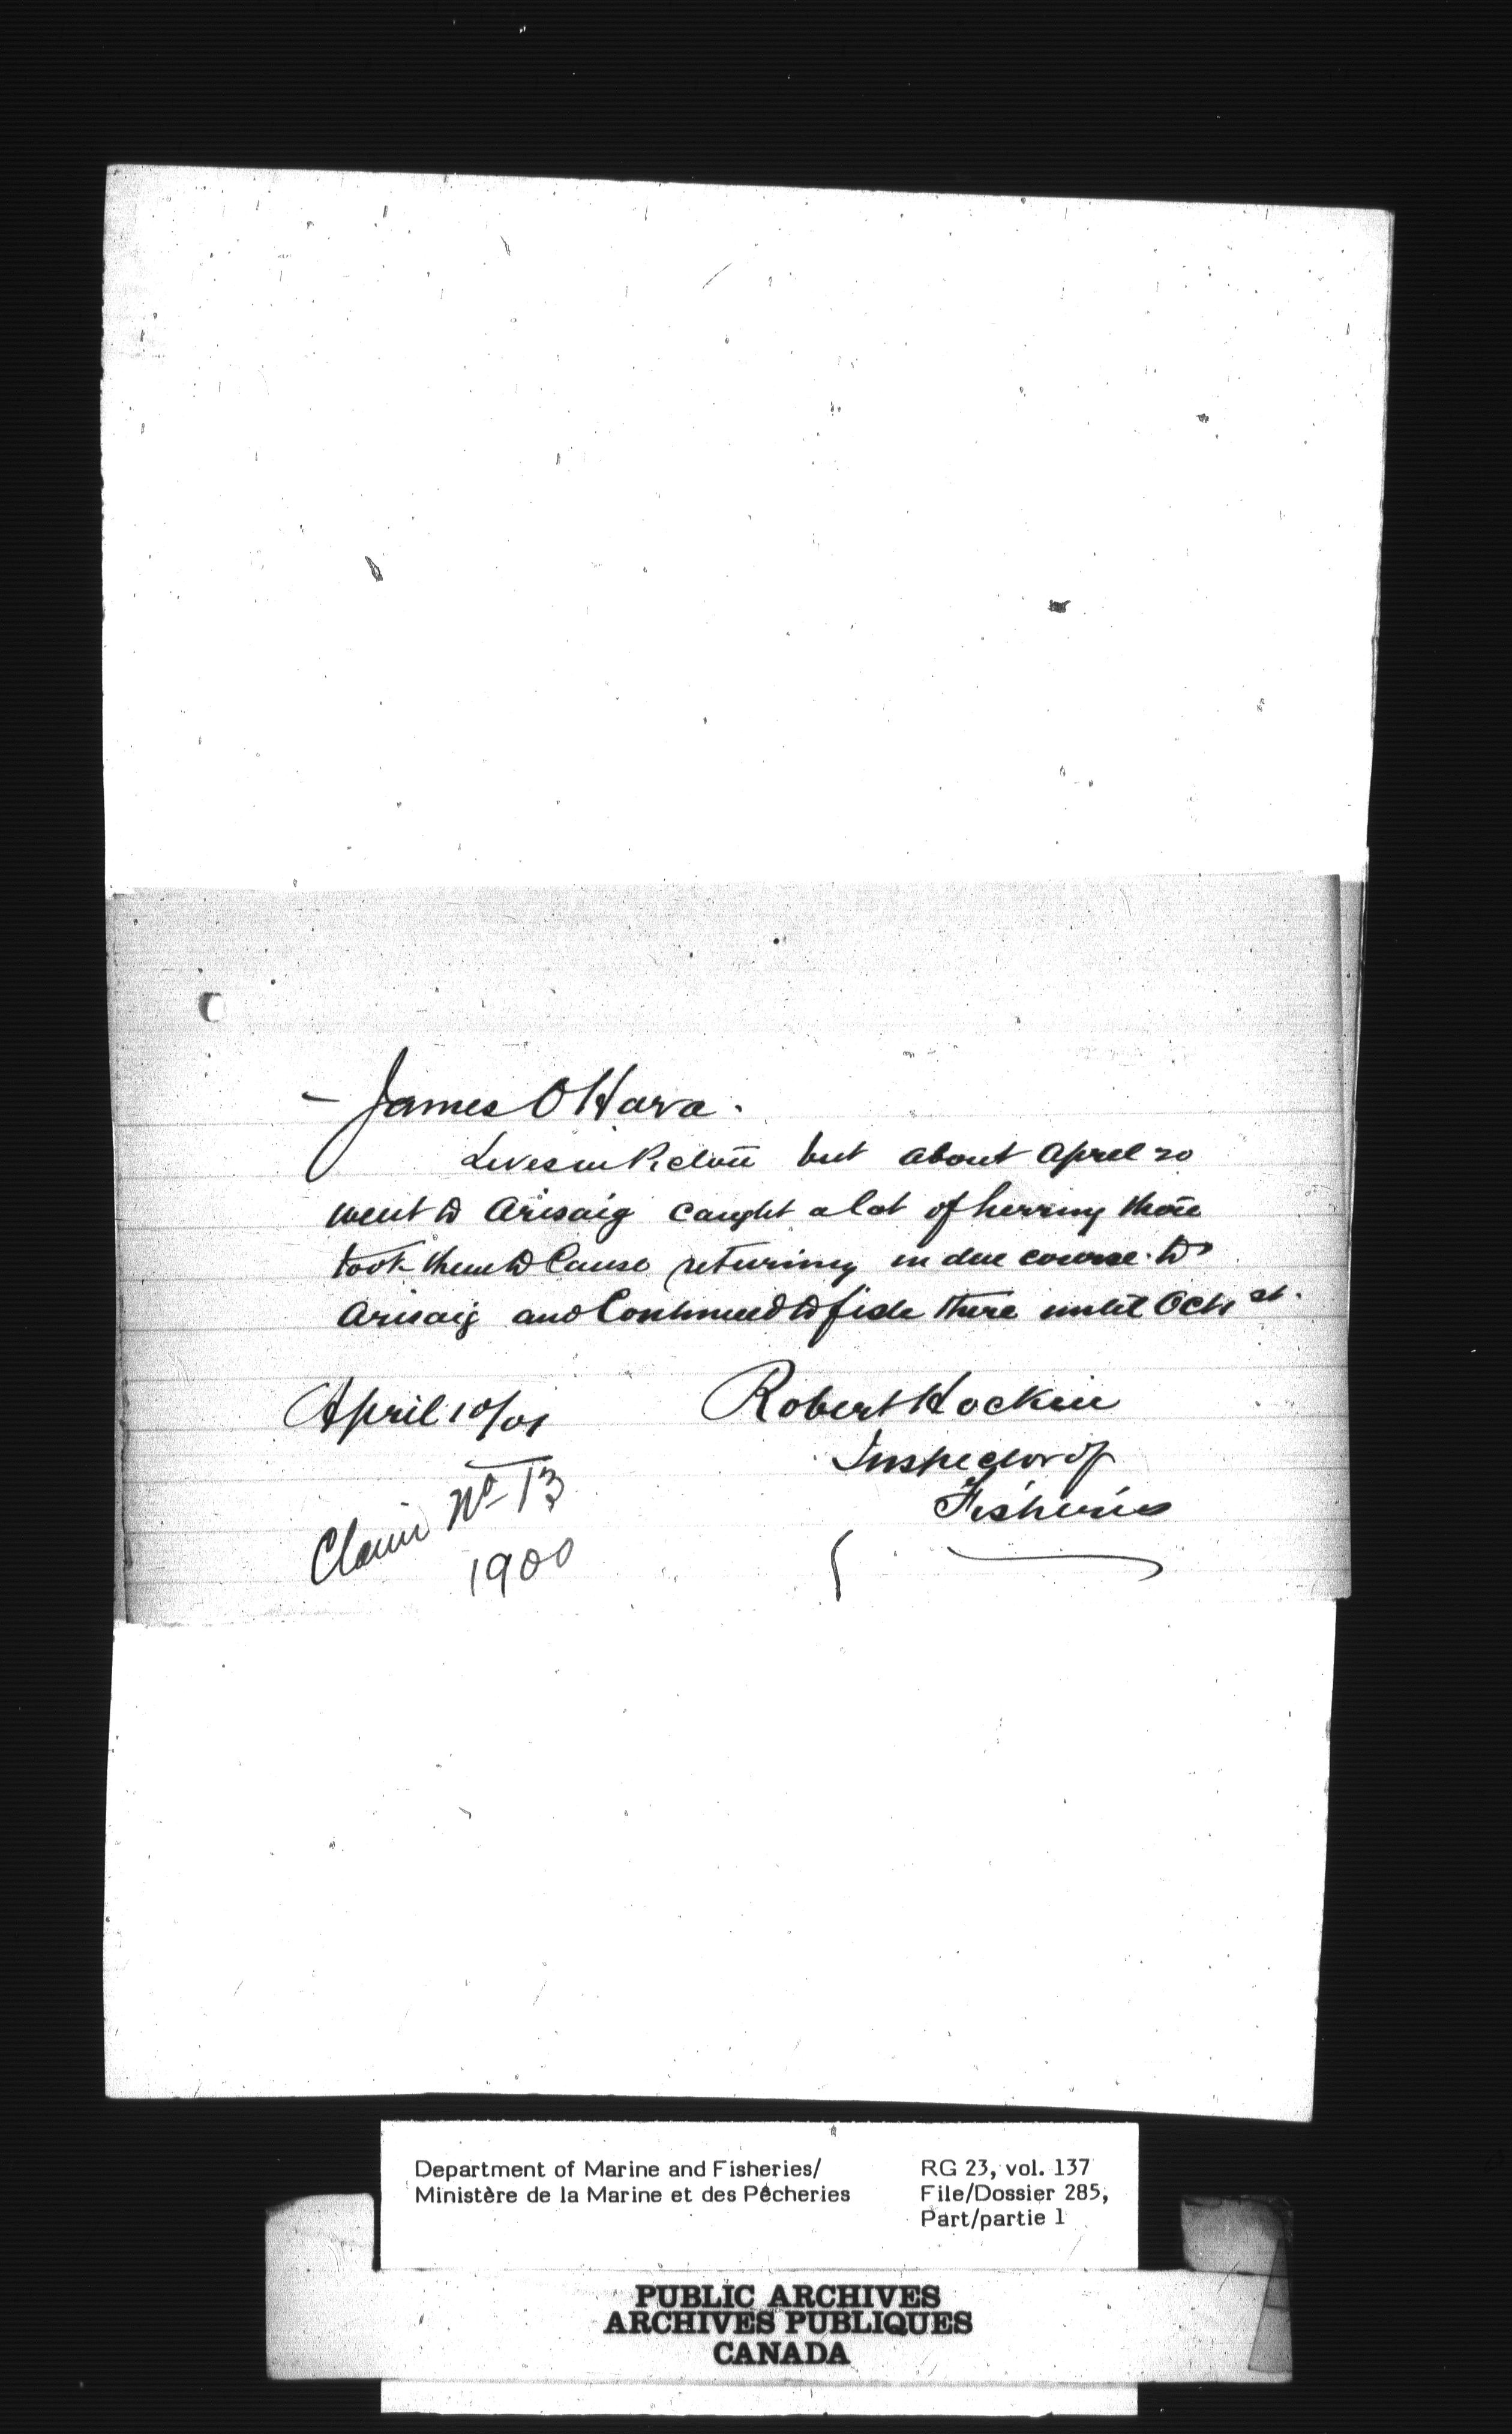 – James O Hara.
Lives in Pictou but about April 20
went to Arisaig caught a lot of herring there
took them to Canso returning in due course to
Arisaig and Continued to fish there until Oct 1st.
April 10/01
Robert Hockin
Inspector of
Fisheries
Claim No 13
1900
Department of Marine and Fisheries/
Ministère de la Marine et des Pêcheries
RG 23, vol. 137
File/Dossier 285,
Part/partie 1
PUBLIC ARCHIVES
ARCHIVES PUBLIQUES
CANADA